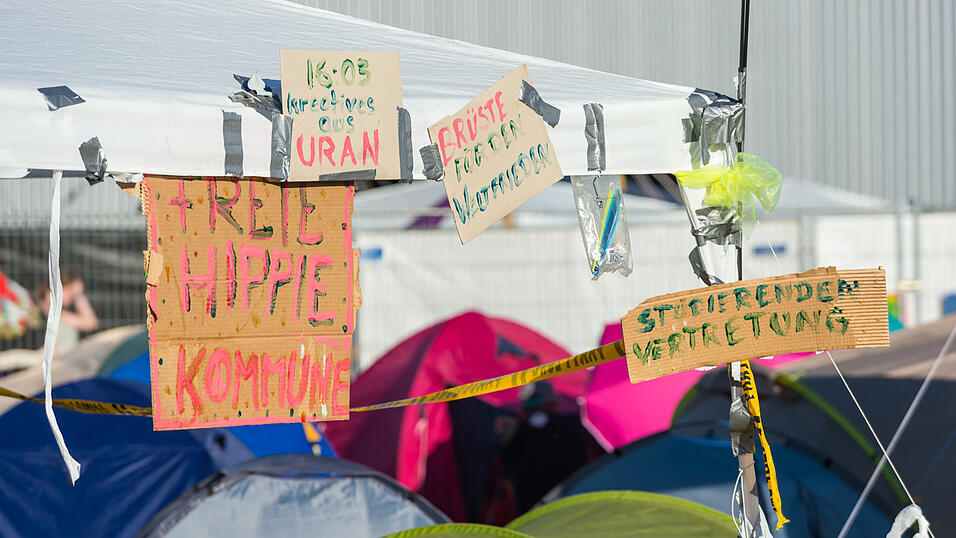 16.03
kreatives
aus
URAN
BRÜSTE
FÜR DEN
WELTFRIEDEN
FREIE
HIPPIE
KOMMUNE
STUDIERENDEN
VERTRETUNG